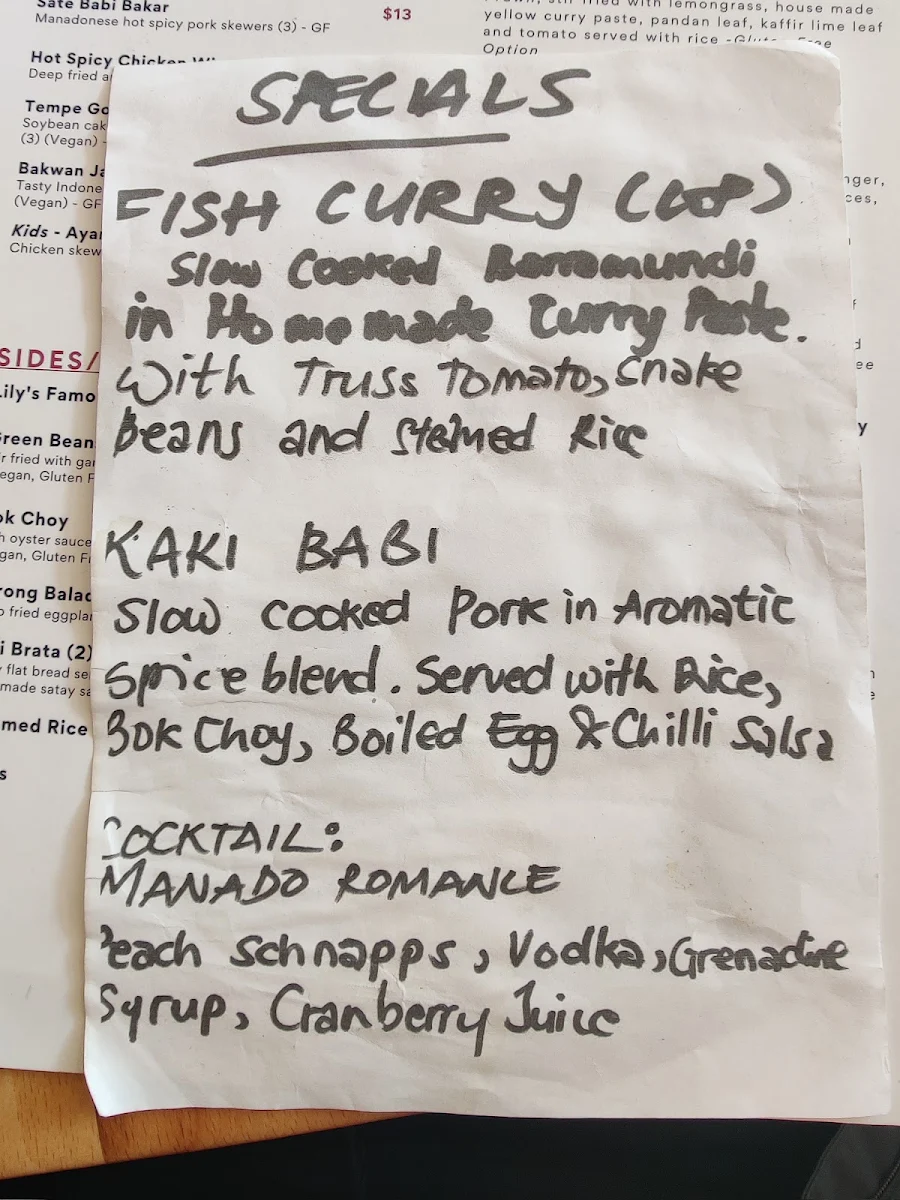 Sate Babi Bakar
Manadonese hot spicy pork skewers (3) - GF
$13
Hot Spicy Chicken
Deep fried a
Tempe Go
Soybean cak
(3) (Vegan) -
Bakwan Ja
Tasty Indone
(Vegan) - GF
Kids - Ayam
Chicken skew
SIDES/
Lily's Famo
Green Bean
r fried with gar
egan, Gluten F
ok Choy
h oyster sauce
gan, Gluten Fr
rong Balad
p fried eggplan
i Brata (2)
flat bread se
made satay sa
med Rice
s
with lemongrass, house made
yellow curry paste, pandan leaf, kaffir lime leaf
and tomato served with rice - Free
Option
nger,
ces,
f
d
ee
y
SPECIALS
FISH CURRY
Slow Cooked Barramundi
in Homemade Curry Paste.
With Truss Tomato, Snake
beans and Steamed Rice
KAKI BABI
Slow cooked Pork in Aromatic
Spice blend. Served with Rice,
Bok Choy, Boiled Egg & Chilli Salsa
COCKTAIL:
MANADO ROMANCE
Peach Schnapps, Vodka, Grenadine
Syrup, Cranberry Juice